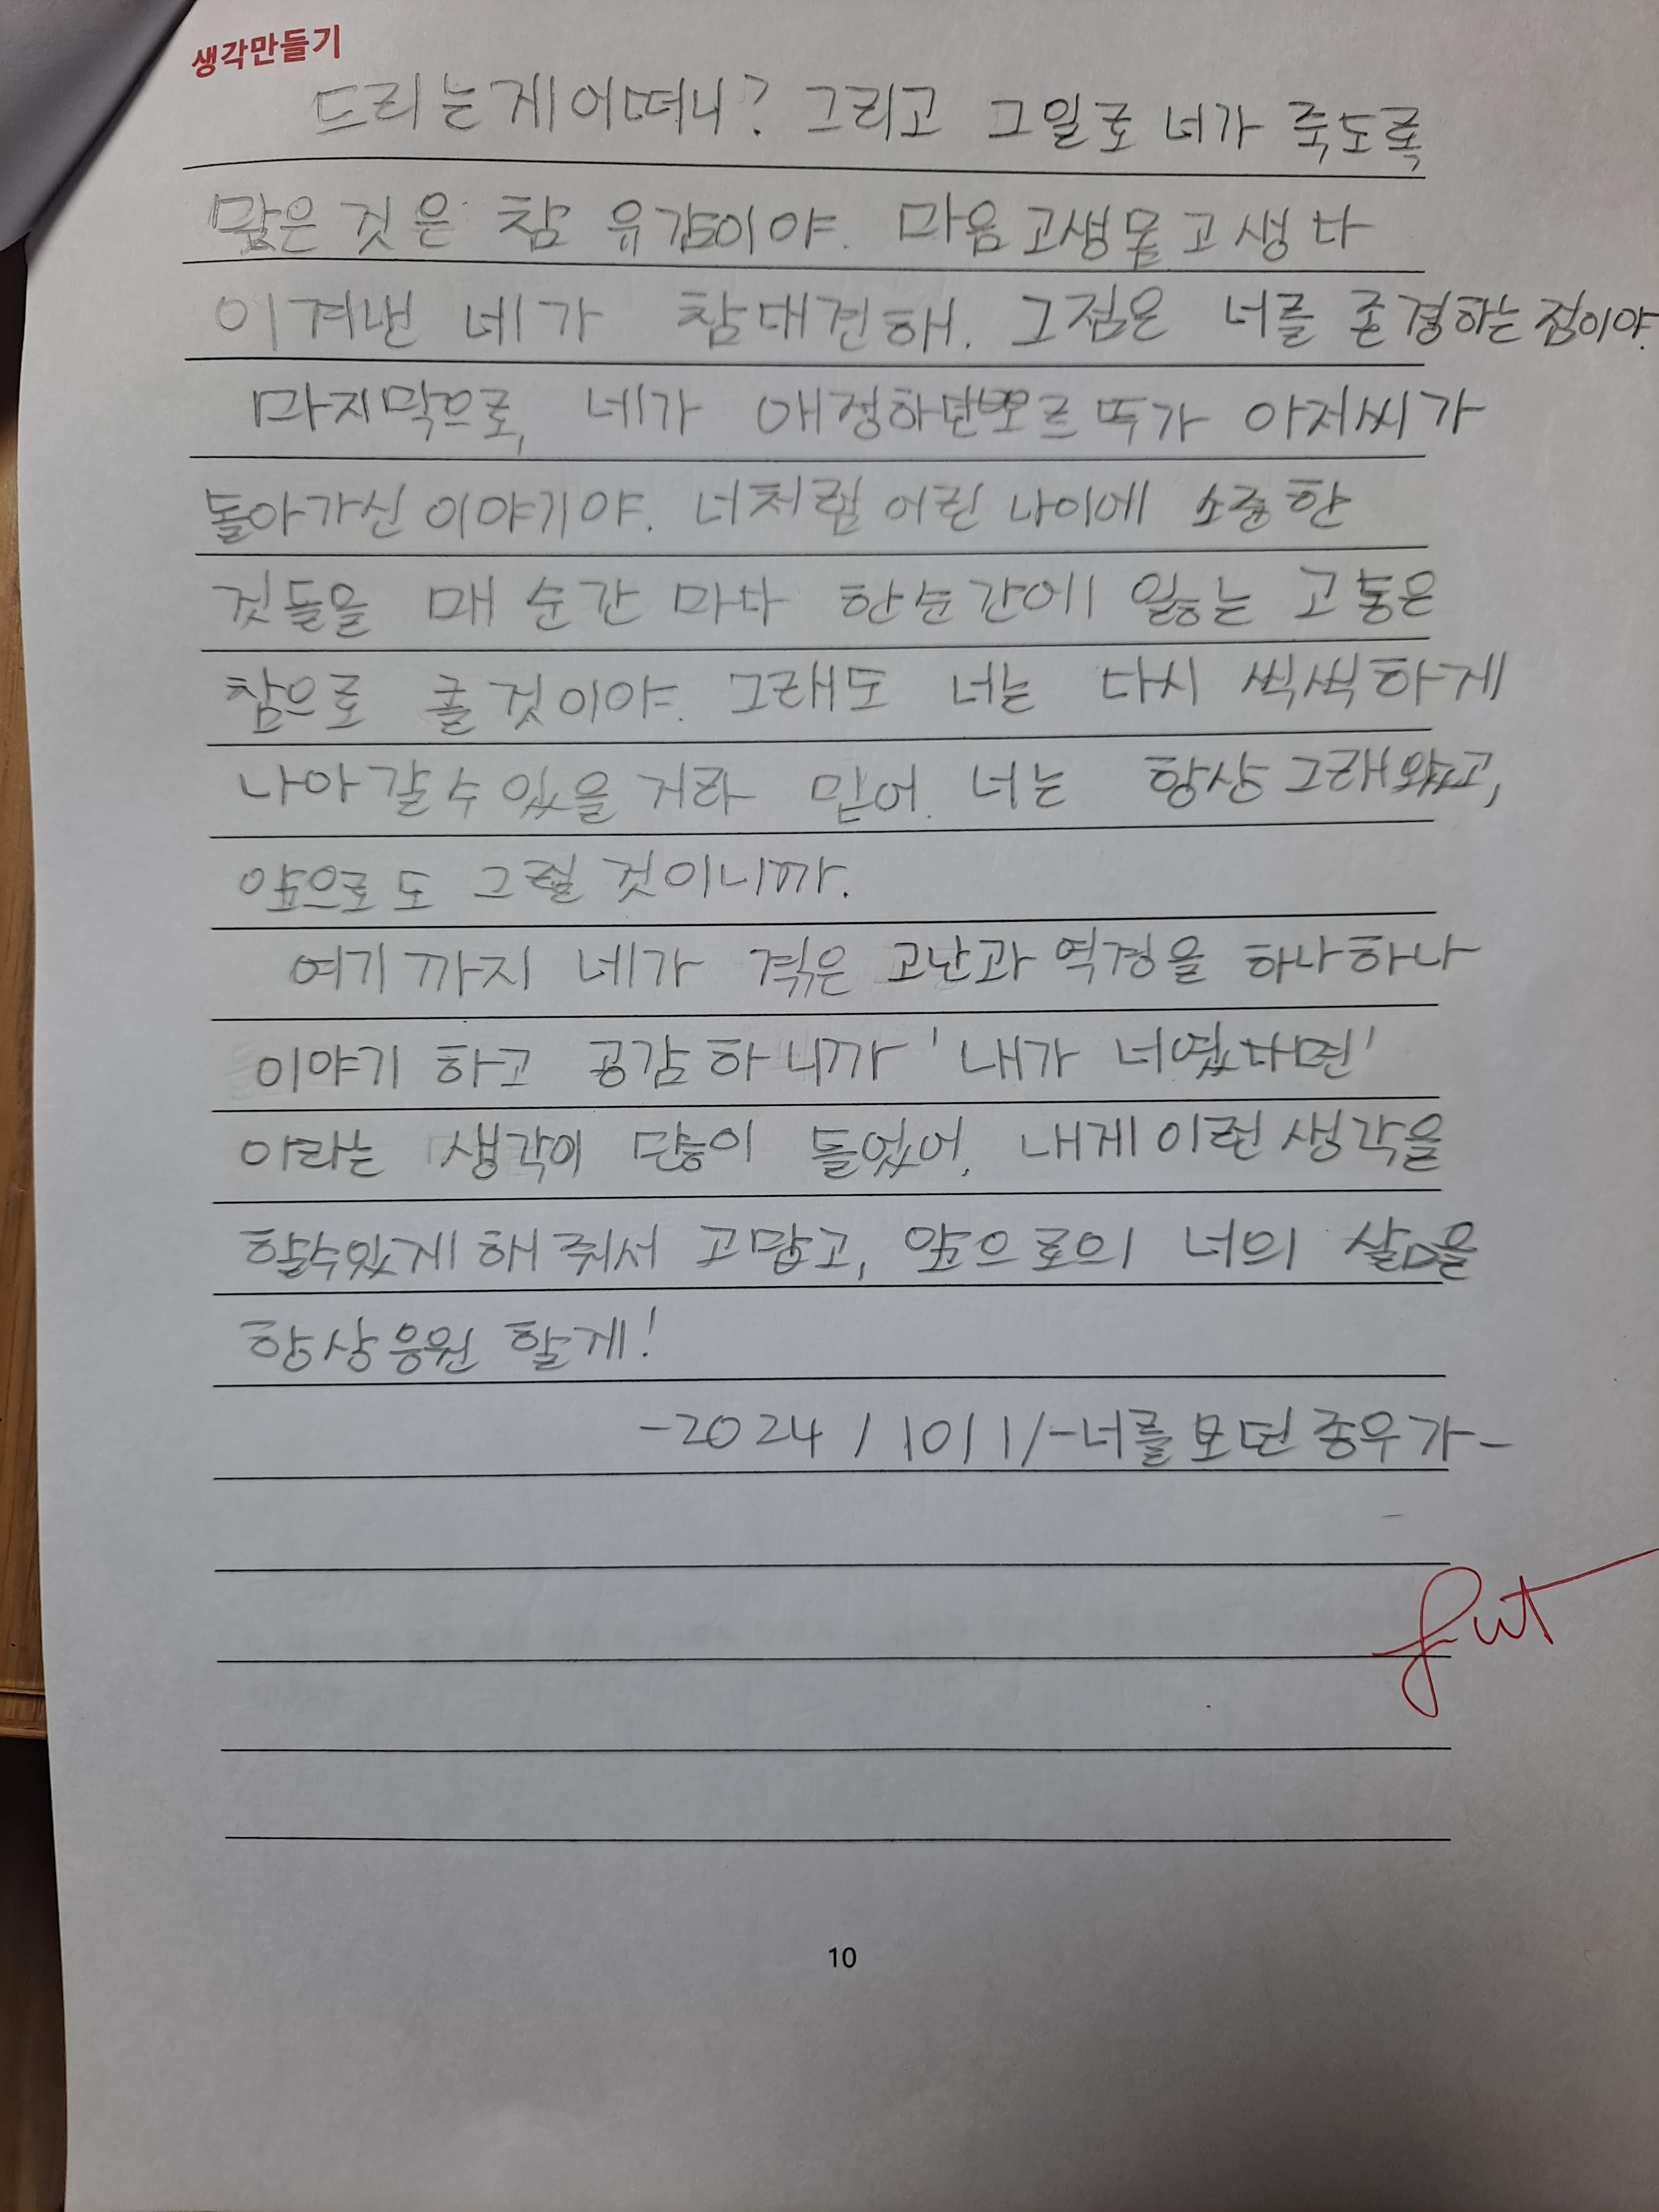 생각만들기
드리는게어떠니? 그리고 그일로 네가 죽도록
맞은 것은 참 유감이야. 마음고생몸고생 다
이겨낸 네가 참대견해. 그점은 너를 존경하는점이야.
마지막으로, 네가 애정하던뽀르뚜가 아저씨가
돌아가신 이야기야. 너처럼 어린 나이에 소중한
것들을 매 순간 마다 한순간에 잃는 고통은
참으로 클것이야. 그래도 너는 다시 씩씩하게
나아갈수있을거라 믿어. 너는 항상그래왔고,
앞으로도 그럴것이니까.
여기까지 네가 겪은 고난과 역경을 하나하나
이야기 하고 공감하니까 '내가 너였다면'
이라는 생각이 많이 들었어. 내게이런생각을
할수있게해줘서 고맙고, 앞으로의 너의 삶을
항상응원 할게!
-2024/10/1/-너를보던종우가-
10